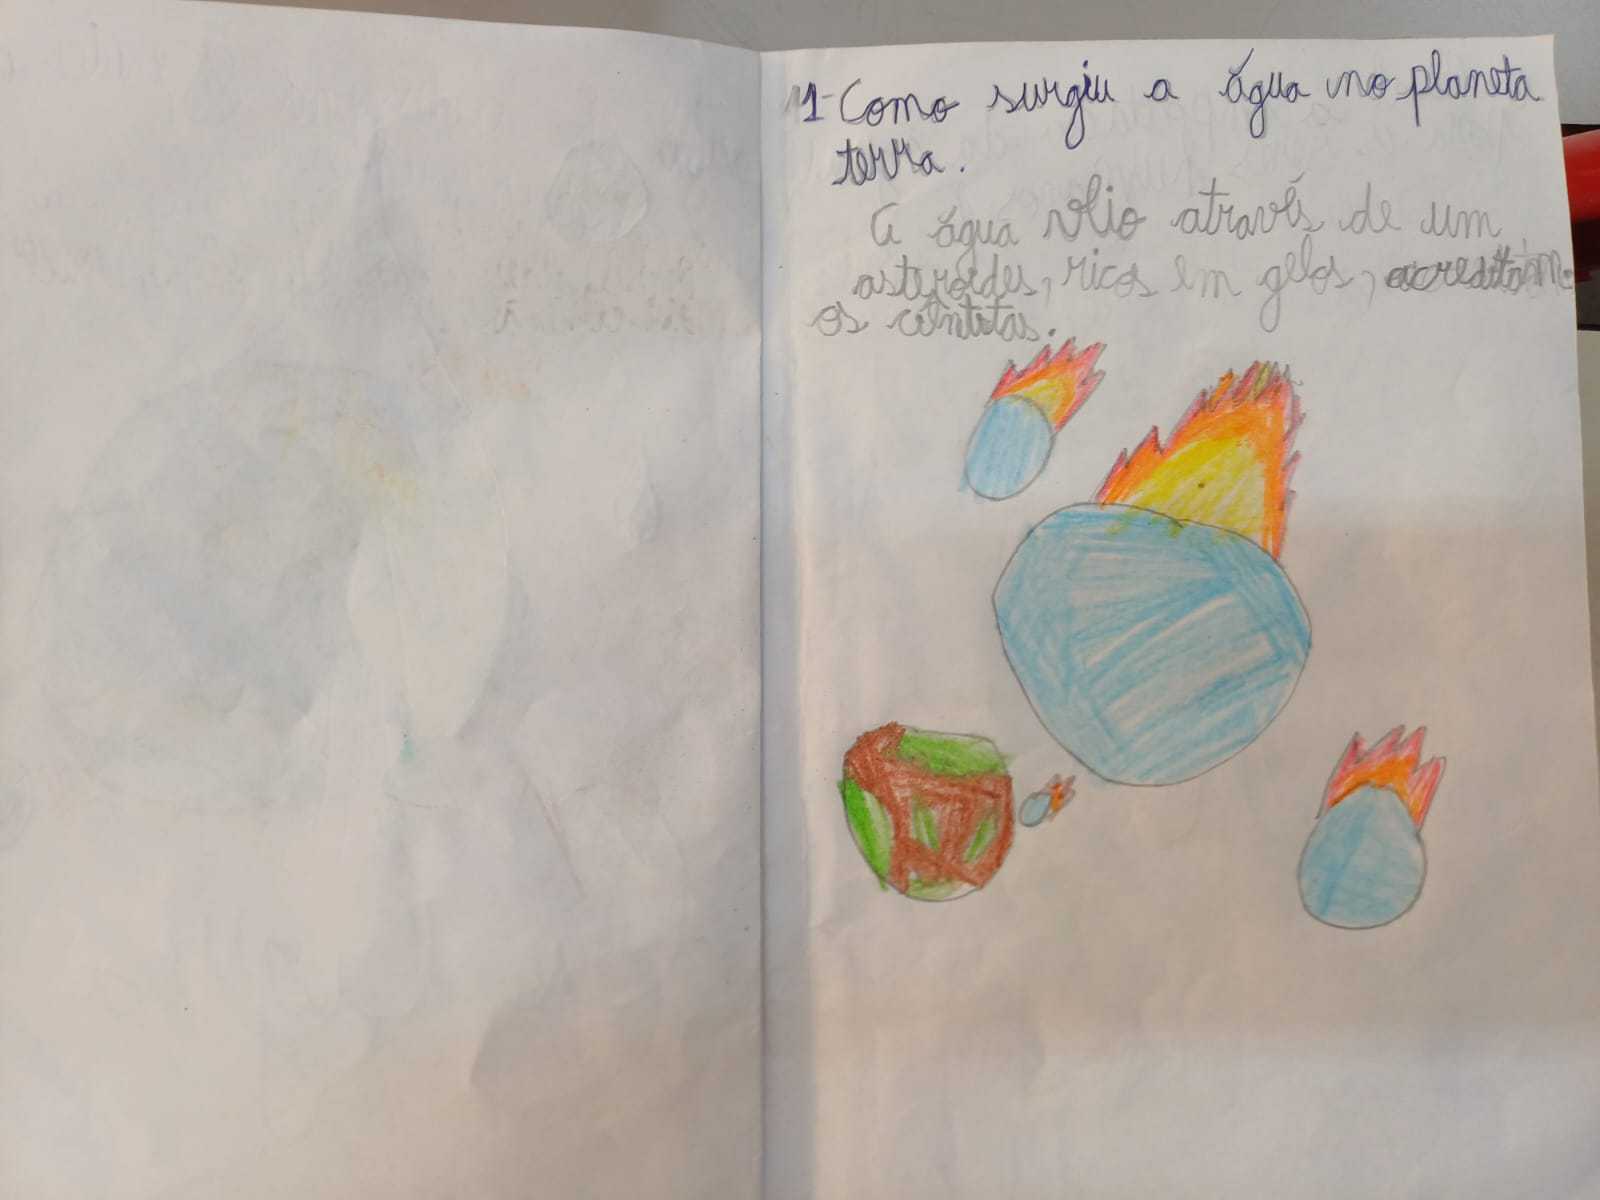 1- Como surgiu a água no planeta
terra.
A água veio através de um
asteroides, ricos em gelos, acreditam
os cientistas.